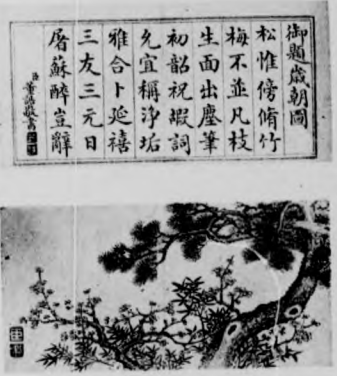 御題歲朝圖
松惟傍脩竹
梅不並凡枝
生面出塵筆
初韶祝嘏詞
允宜稱淨垢
雅合卜延禧
三友三元日
屠蘇醉豈辭
臣董誥敬書